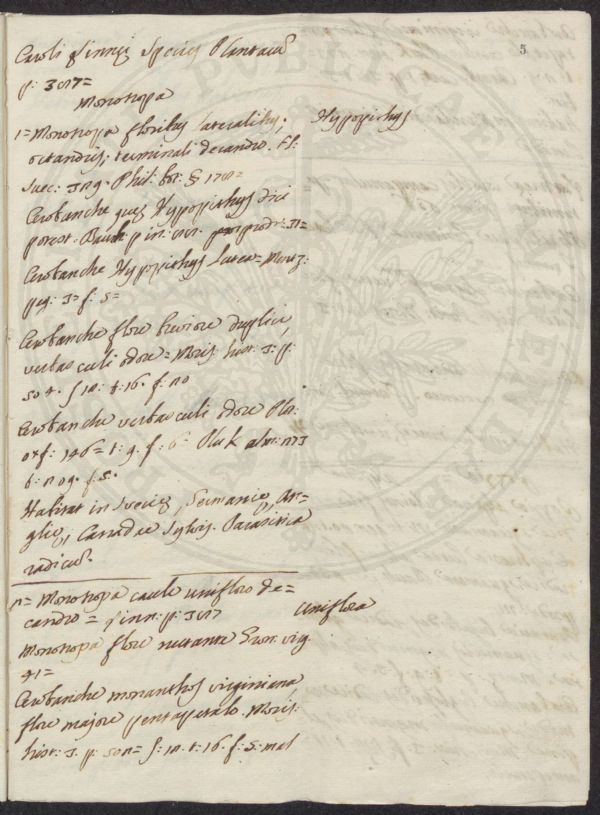 5
Caroli Linnej Species Plantarũ
p: 387=
Monotropa
1= Monotropa floribus lateralibus,
Hypopithys
octandris, terminali decandro. Fl:
suec:
Phil: bot: §
Orobanche quæ Hypopithys dici
potest. Bauh pin: prodr: 31=
Orobanche Hypopithys lutea= Mentz:
pug: 3= f: 5=
Orobanche flore breviore duplici,
verbasculi odore= Moris: hist: 3. p:
504. f 12: t: 16. f: 20
Orobanche verbasculi odore Plot:
oxf: 146= t: 9. f: 6= Pluk alm: 273
t: 209. f: 5.
Habitat in Sueciæ, Germaniæ, An=
gliæ, Canadæ Sylvis. Parasitica
radicũ.
2= Monotropa caule unifloro de=
Uniflora
candro= Linn: p: 387
Monotropa flore nutante Gron: virg.
41=
Orobanche monanthos virginiana,
flore majore pentapetalo. Moris:
hist: 3. p: 502= f: 12. t: 16. f: 5: mal